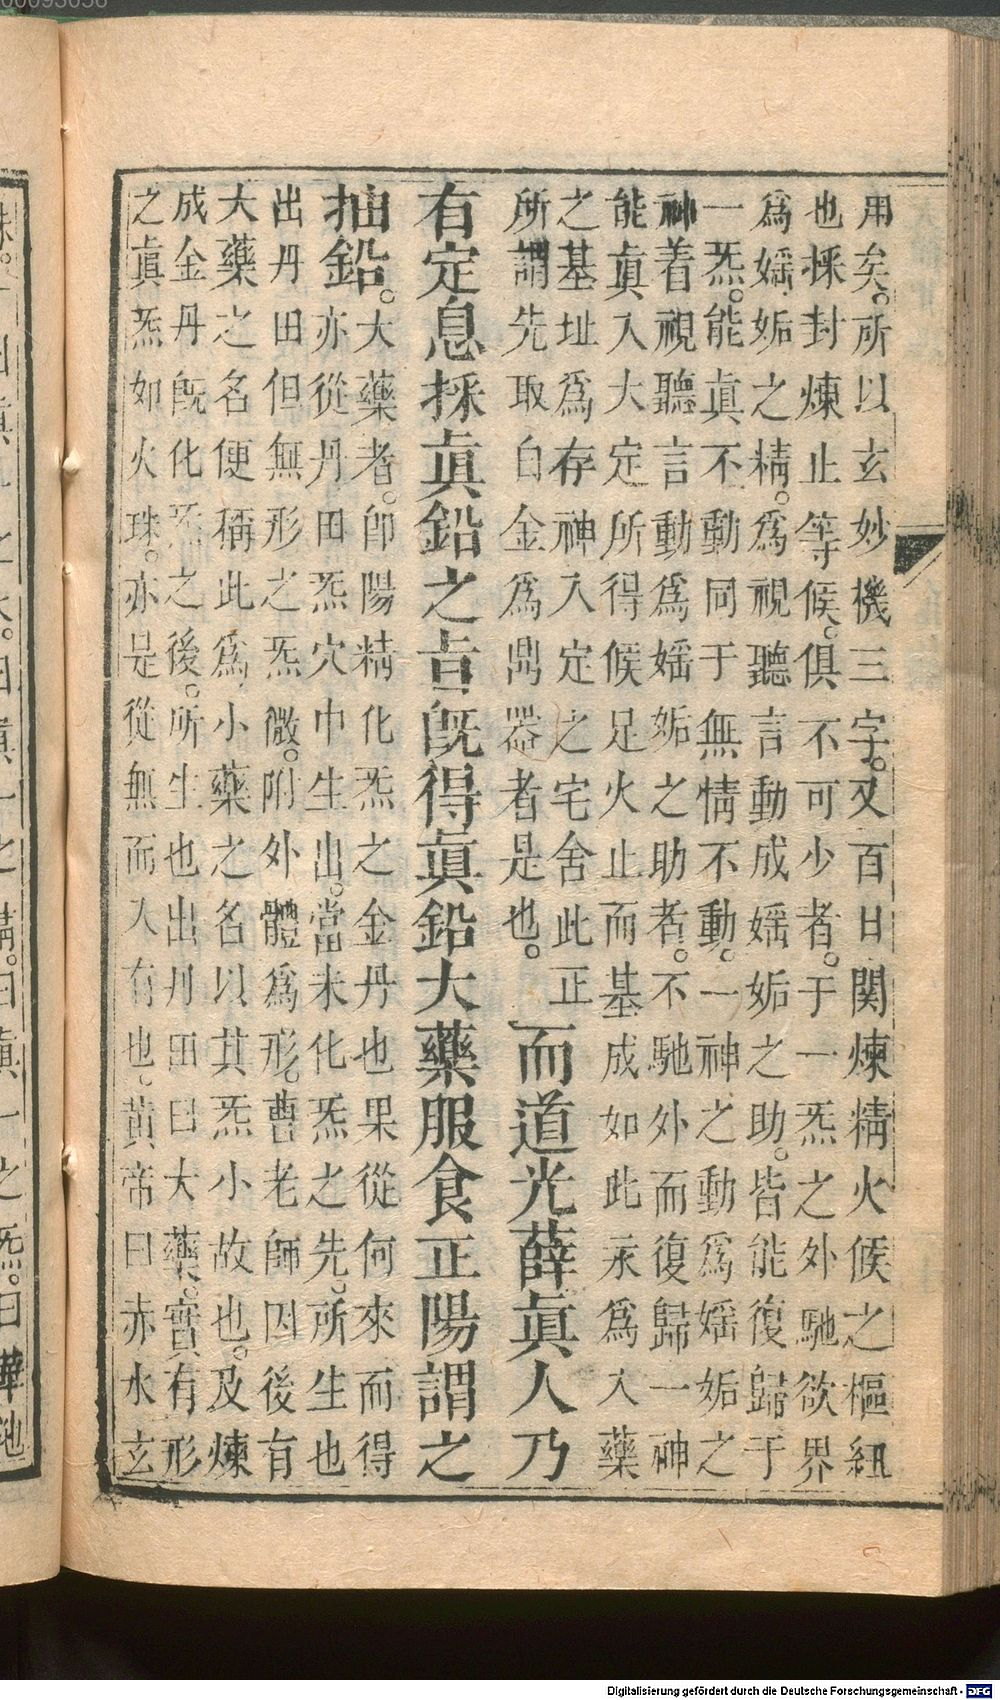 用矣。所以玄妙機三字。又百日関煉精火候之樞紐
也採封煉止等候。俱不可少者。于一炁之外馳欲界
爲婬妬之精。爲視聽言動成婬妬之助。皆能復歸于
一炁。能眞不動同于無情不動。一神之動爲婬妬之
神着視聽言動爲婬妬之助者。不馳外而復歸一神
能眞入大定所得候足火止而基成如此永爲入藥
之基址爲存神入定之宅舍此正
所謂先取白金爲鼎器者是也。
而道光薛眞人乃
有定息採眞鉛之旨旣得眞鉛大藥服食正陽謂之
抽鉛。
大藥者。卽陽精化炁之金丹也果從何來而得
亦從丹田炁穴中生出。當未化炁之先。所生也
出丹田但無形之炁微。附外體爲形。曹老師因後有
大藥之名便稱此爲小藥之名以其炁小故也。及煉
成金丹旣化炁之後。所生也出丹田曰大藥。實有形
之眞炁如火珠。亦是從無而入有也。黃帝曰赤水玄
Digitalisierung gefördert durch die Deutsche Forschungsgemeinschaft - DFG